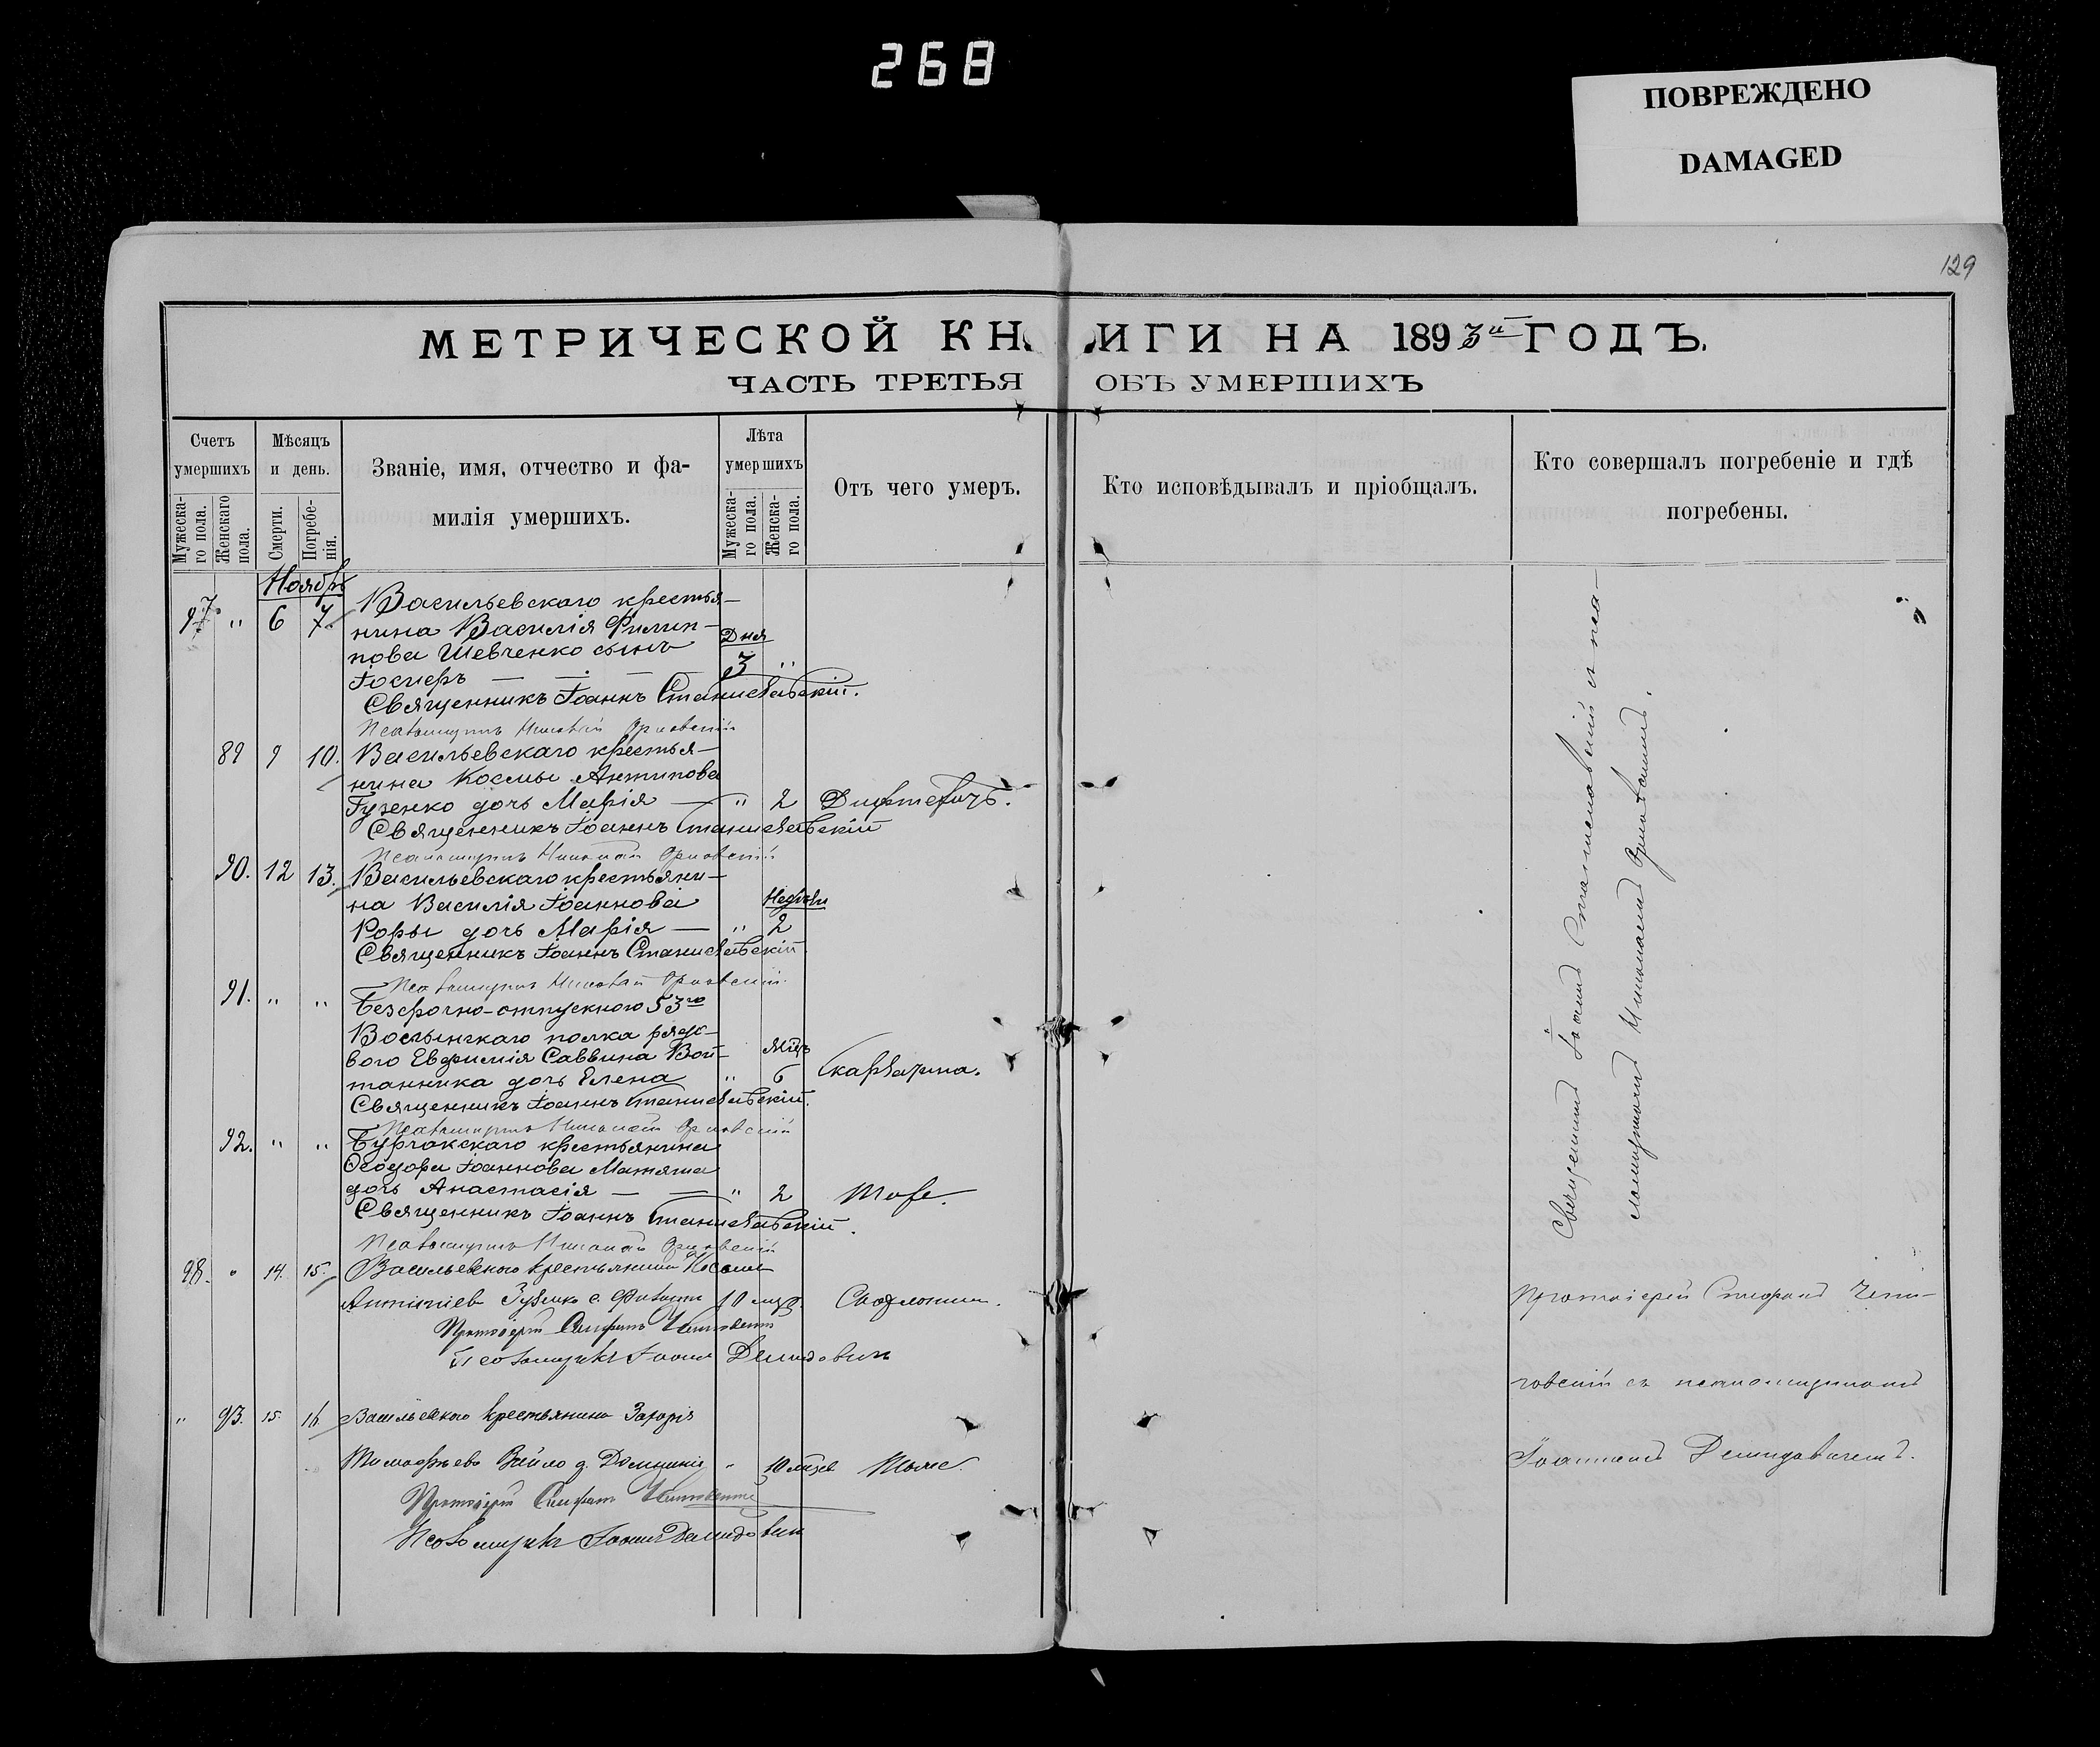 268
ПОВРЕЖДЕНО
DAMAGED
129
МЕТРИЧЕСКОЙ КНИГИ НА 1893й ГОДЪ.
ЧАСТЬ ТРЕТЬЯ ОБЪ УМЕРШИХЪ
Счетъ умершихъ
Мужеска-го пола.
Женскаго пола.
Мѣсяцъ и день.
Смерти.
Погребе-нія.
Званіе, имя, отчество и фа-
милія умершихъ.
Лѣта умершихъ
Мужеска-го пола.
Женска-го пола.
Отъ чего умеръ.
Кто исповѣдывалъ и пріобщалъ.
Кто совершалъ погребеніе и гдѣ
погребены.
Ноябрь
97. " 6 7. Васильевскаго крестья-
нина Василія Филип-
пова Шевченко сынъ Дня
Іосифъ — 3 "
Священникъ Іоаннъ Станиславскій.
Псаломщикъ Николай Орловскій
89 9 10. Васильевскаго крестья-
нина Космы Антипова
дочь Марія — " 2 Дифтеритъ.
Священникъ Іоаннъ Станиславскій
Псаломщикъ Николай Орловскій
90. 12 13. Васильевскаго крестьяни-
на Василія Іоаннова Недѣли
дочь Марія — " 2
Священникъ Іоаннъ Станиславскій.
Псаломщикъ Николай Орловскій.
91. " " Безсрочно-отпускного 53го
Волынскаго полка рядо-
вого Евфимія Саввина Вой-
танника дочь Елена " 6 Скарлатина.
Священникъ Іоаннъ Станиславскій.
Псаломщикъ Николай Орловскій
92. " " Бурчакскаго крестьянина
Ѳеодора Іоаннова Матяша
дочь Анастасія — — " 2 Тоже.
Священникъ Іоаннъ Станиславскій.
Псаломщикъ Николай Орловскій
98. " 14. 15. Васильевскаго крестьянина Космы
10 мѣс.
Протоіерей Стефанъ
Псаломщикъ Іоаннъ Демидовичъ
" 93. 15. 16. Васильевскаго крестьянина Захарія
Тимофѣева д. Домникія " 10 мѣс. Тоже.
Протоіерей Стефанъ
Псаломщикъ Іоаннъ Демидовичъ
Священникъ Іоаннъ Станиславскій съ пса-
ломщикомъ Николаемъ Орловскимъ.
Протоіерей Стефанъ
съ псаломщикомъ
Іоанномъ Демидовичемъ.